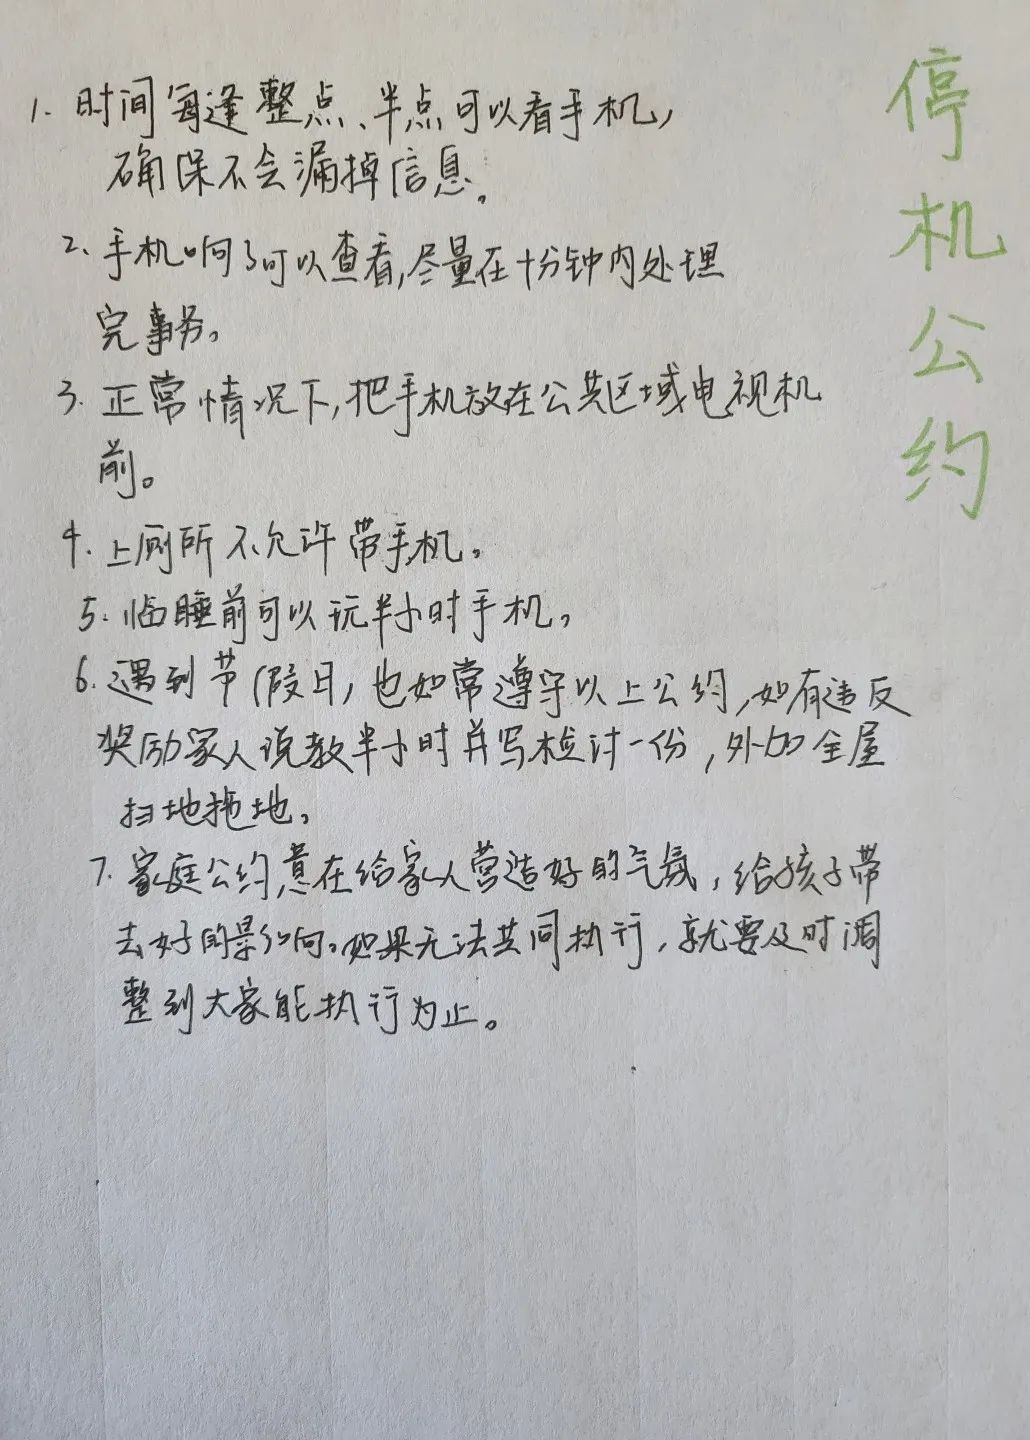 停机公约
1. 时间每逢整点、半点可以看手机,
确保不会漏掉信息。
2. 手机响了可以查看,尽量在十分钟内处理
完事务。
3. 正常情况下,把手机放在公共区域电视机
前。
4. 上厕所不允许带手机。
5. 临睡前可以玩半小时手机。
6. 遇到节假日,也如常遵守以上公约,如有违反
奖励家人说教半小时并写检讨一份,外加全屋
扫地拖地。
7. 家庭公约意在给家人营造好的气氛,给孩子带
去好的影响。如果无法共同执行,就要及时调
整到大家能执行为止。